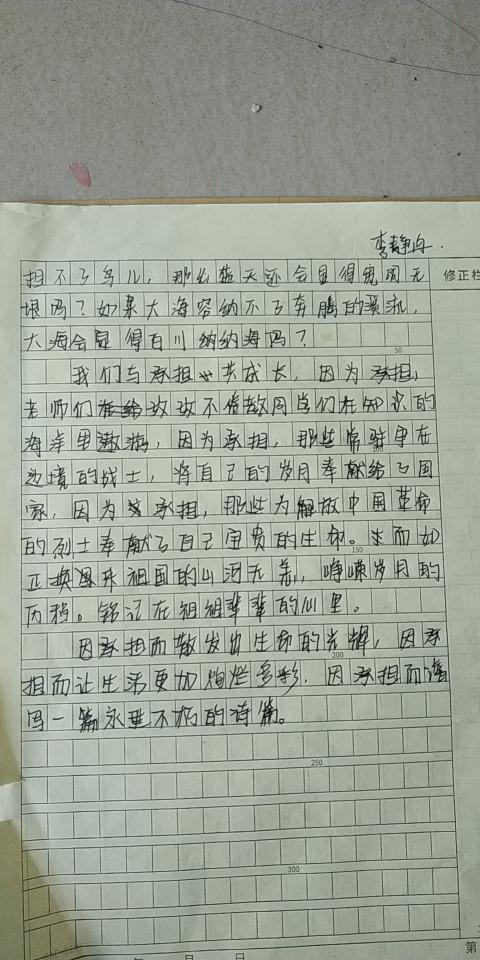 李静
担不了鸟儿，那么蓝天还会显得宽阔无
垠吗？如果大海容纳不了奔腾的溪流，
大海会显得百川纳纳海吗？
50
我们与承担共成长，因为承担，
老师们孜孜不倦教同学们在知识的
海洋里遨游，因为承担，那些常驻守在
边境的战士，将自己的岁月奉献给了国
家，因为承担，那些为解放中国革命
的烈士奉献了自己宝贵的生命。
150
正换祖国的山河无恙，峥嵘岁月的
历程。铭记在祖祖辈辈的心里。
因承担而散发出生命的光辉，因承
200
担而让生活更加绚烂多彩，因承担而谱
写一篇永垂不朽的诗篇。
250
300
修正栏
年 月 日
第